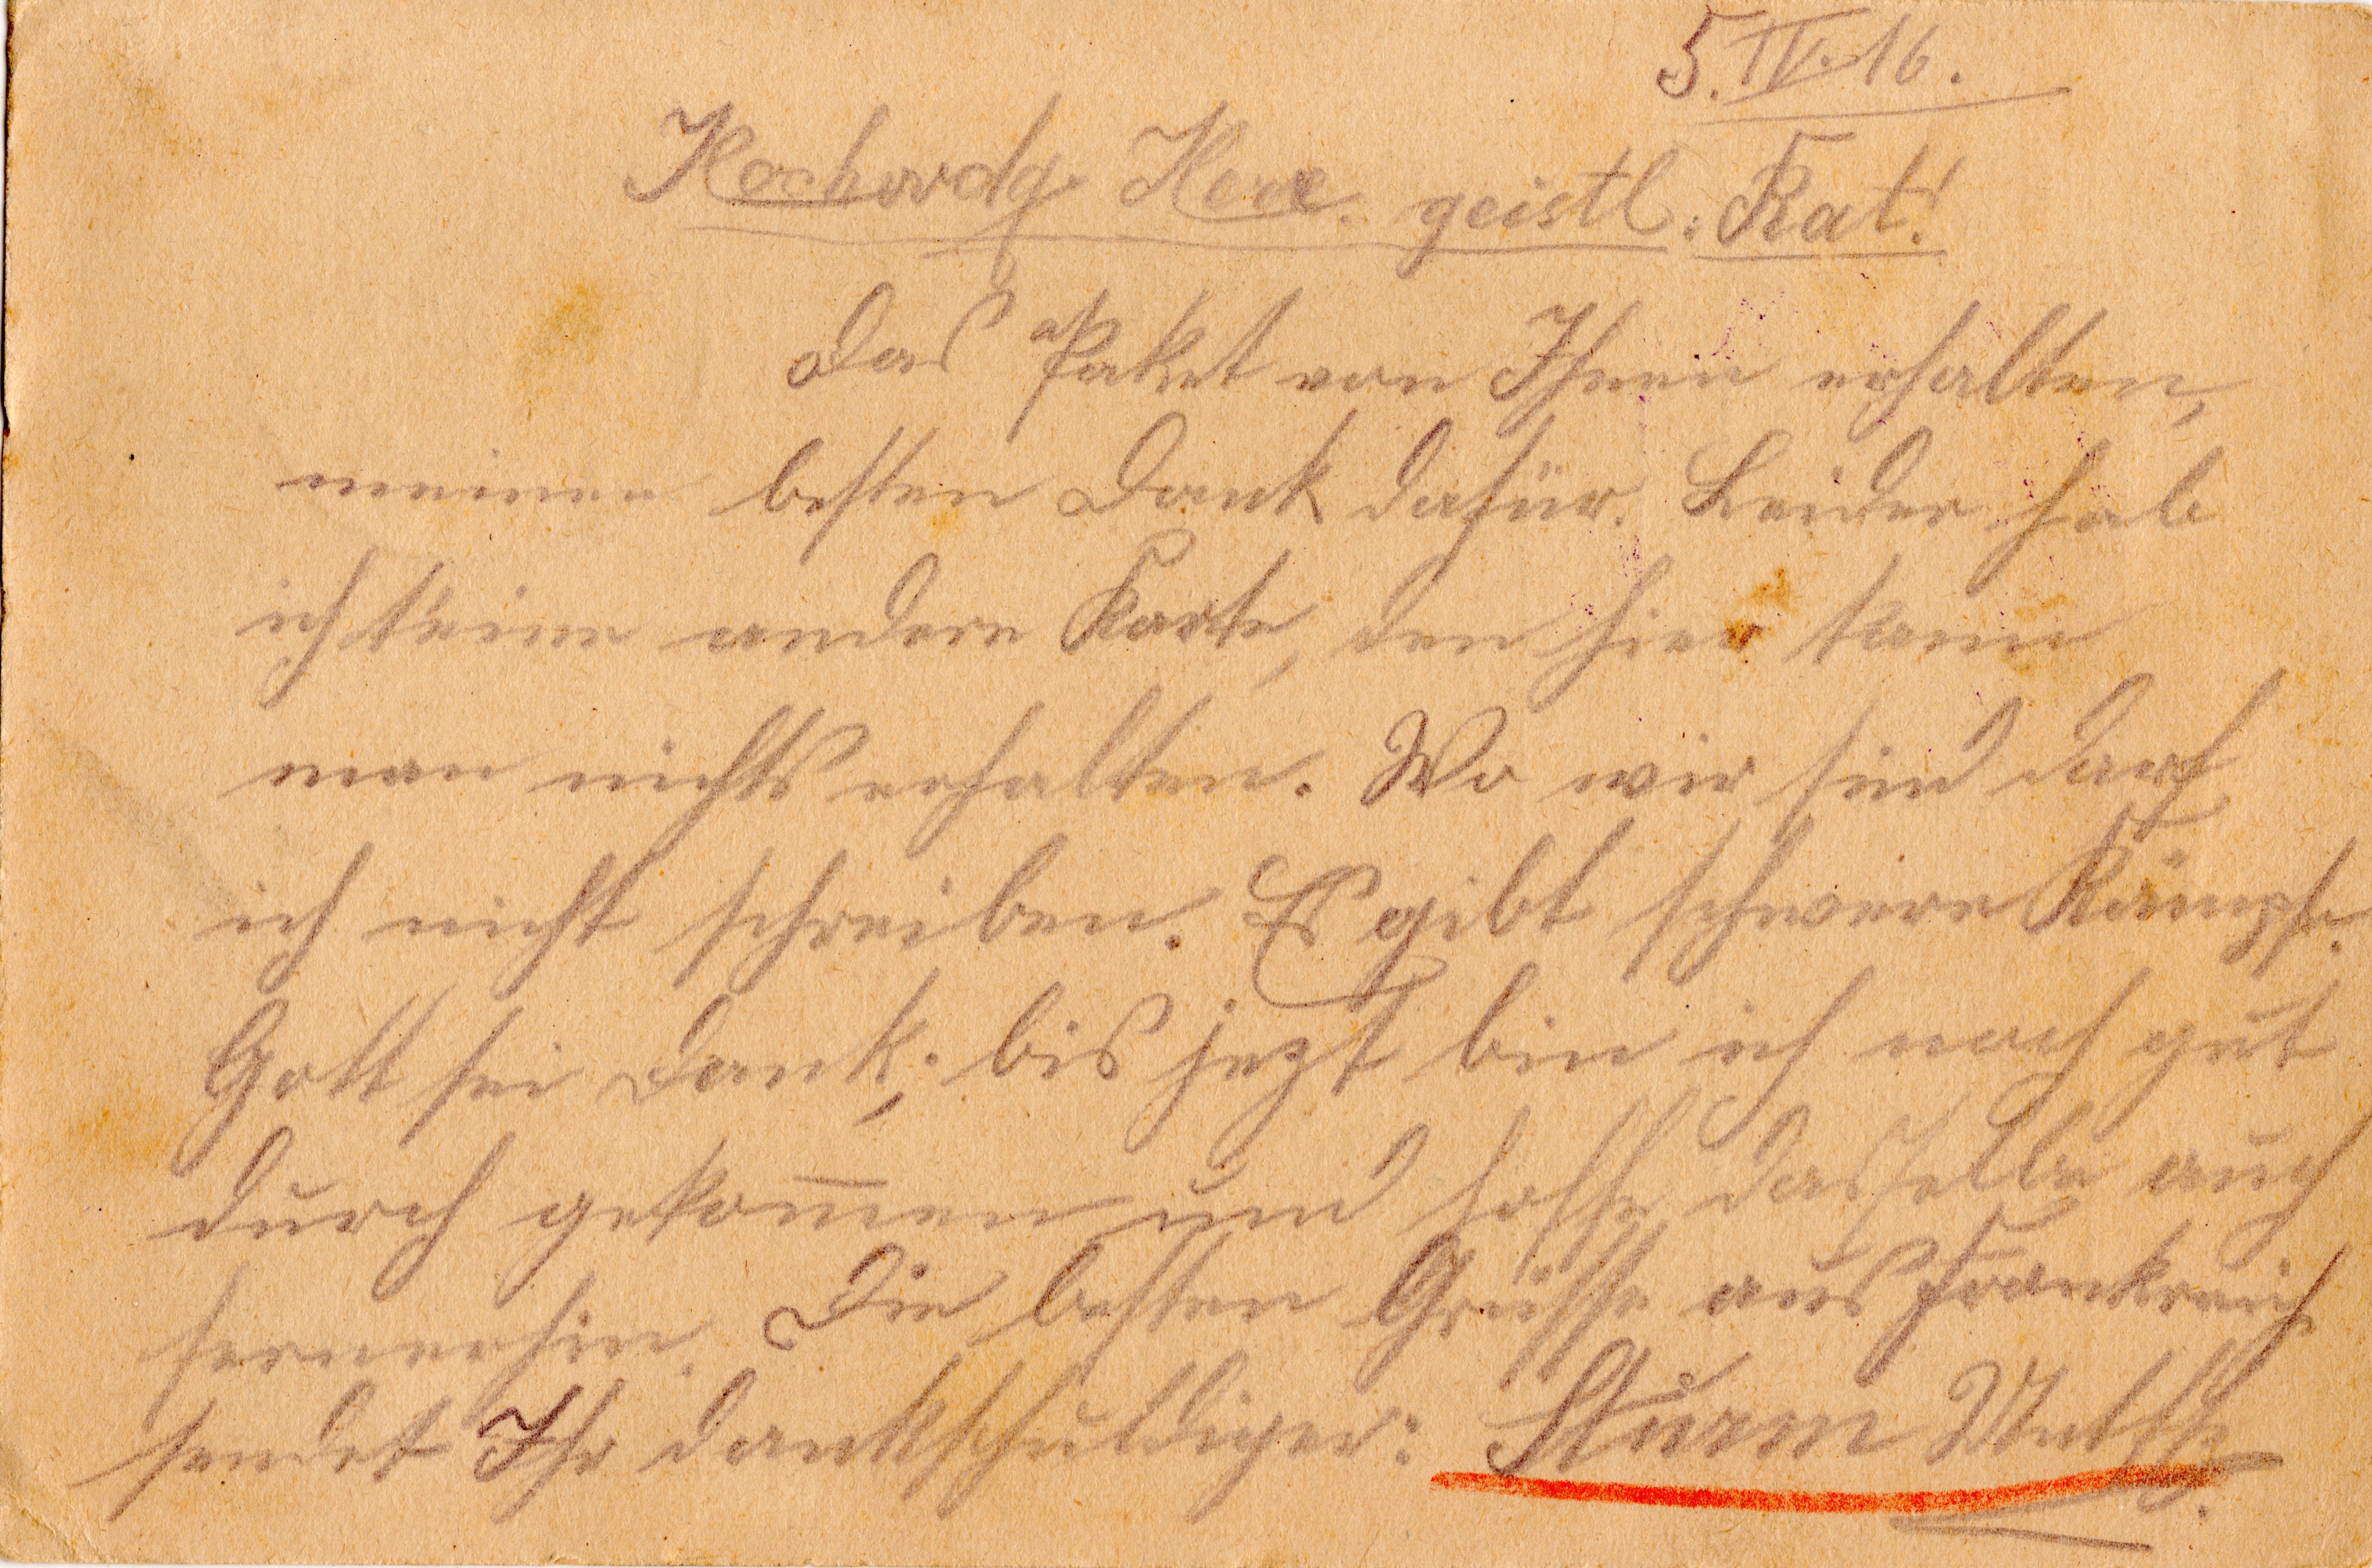 5.IV.16.
Hochwdg Herr. geistl. Rat!
Das Paket von Ihnen erhalten,
meinen besten Dank dafür. Leider hab
ich keine andere Karte, den hier kann
man nichts erhalten. Wo wir sind darf
ich nicht schreiben. Es gibt schwere Kämpfe.
Gott sei Dank; bis jezt bin ich noch gut
durch gekom̄en und hoffe dasselbe auch
fernerhin. Die besten Grüsse aus Frankreich
sendet Ihr dankschuldiger: Sturm